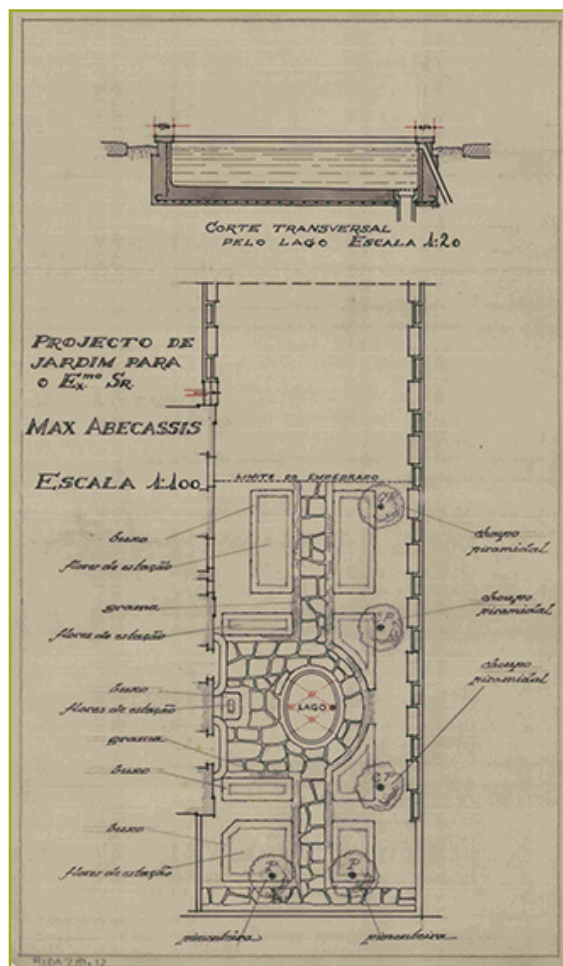 CORTE TRANSVERSAL
PELO LAGO ESCALA 1:20
PROJECTO DE
JARDIM PARA
O Ex.mo SR.
MAX ABECASSIS
ESCALA 1:100
LIMITE DO EMPEDRADO
buxo
flores de estação
grama
flores de estação
buxo
flores de estação
grama
buxo
buxo
flores de estação
choupo
piramidal
C P
choupo
piramidal
choupo
piramidal
C P
LAGO
P
P
pimenteira
pimenteira